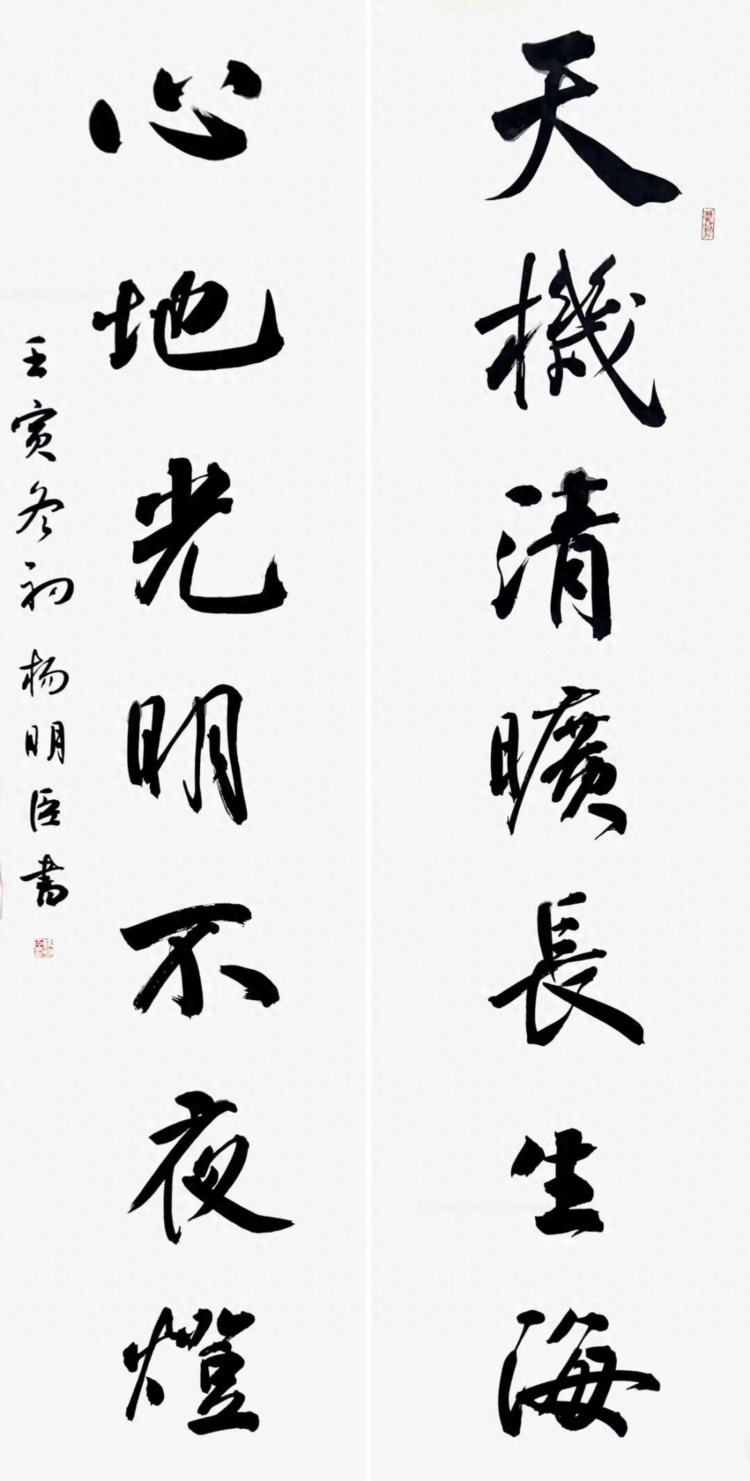 天機清曠長生海
心地光明不夜燈
壬寅冬初杨明臣书